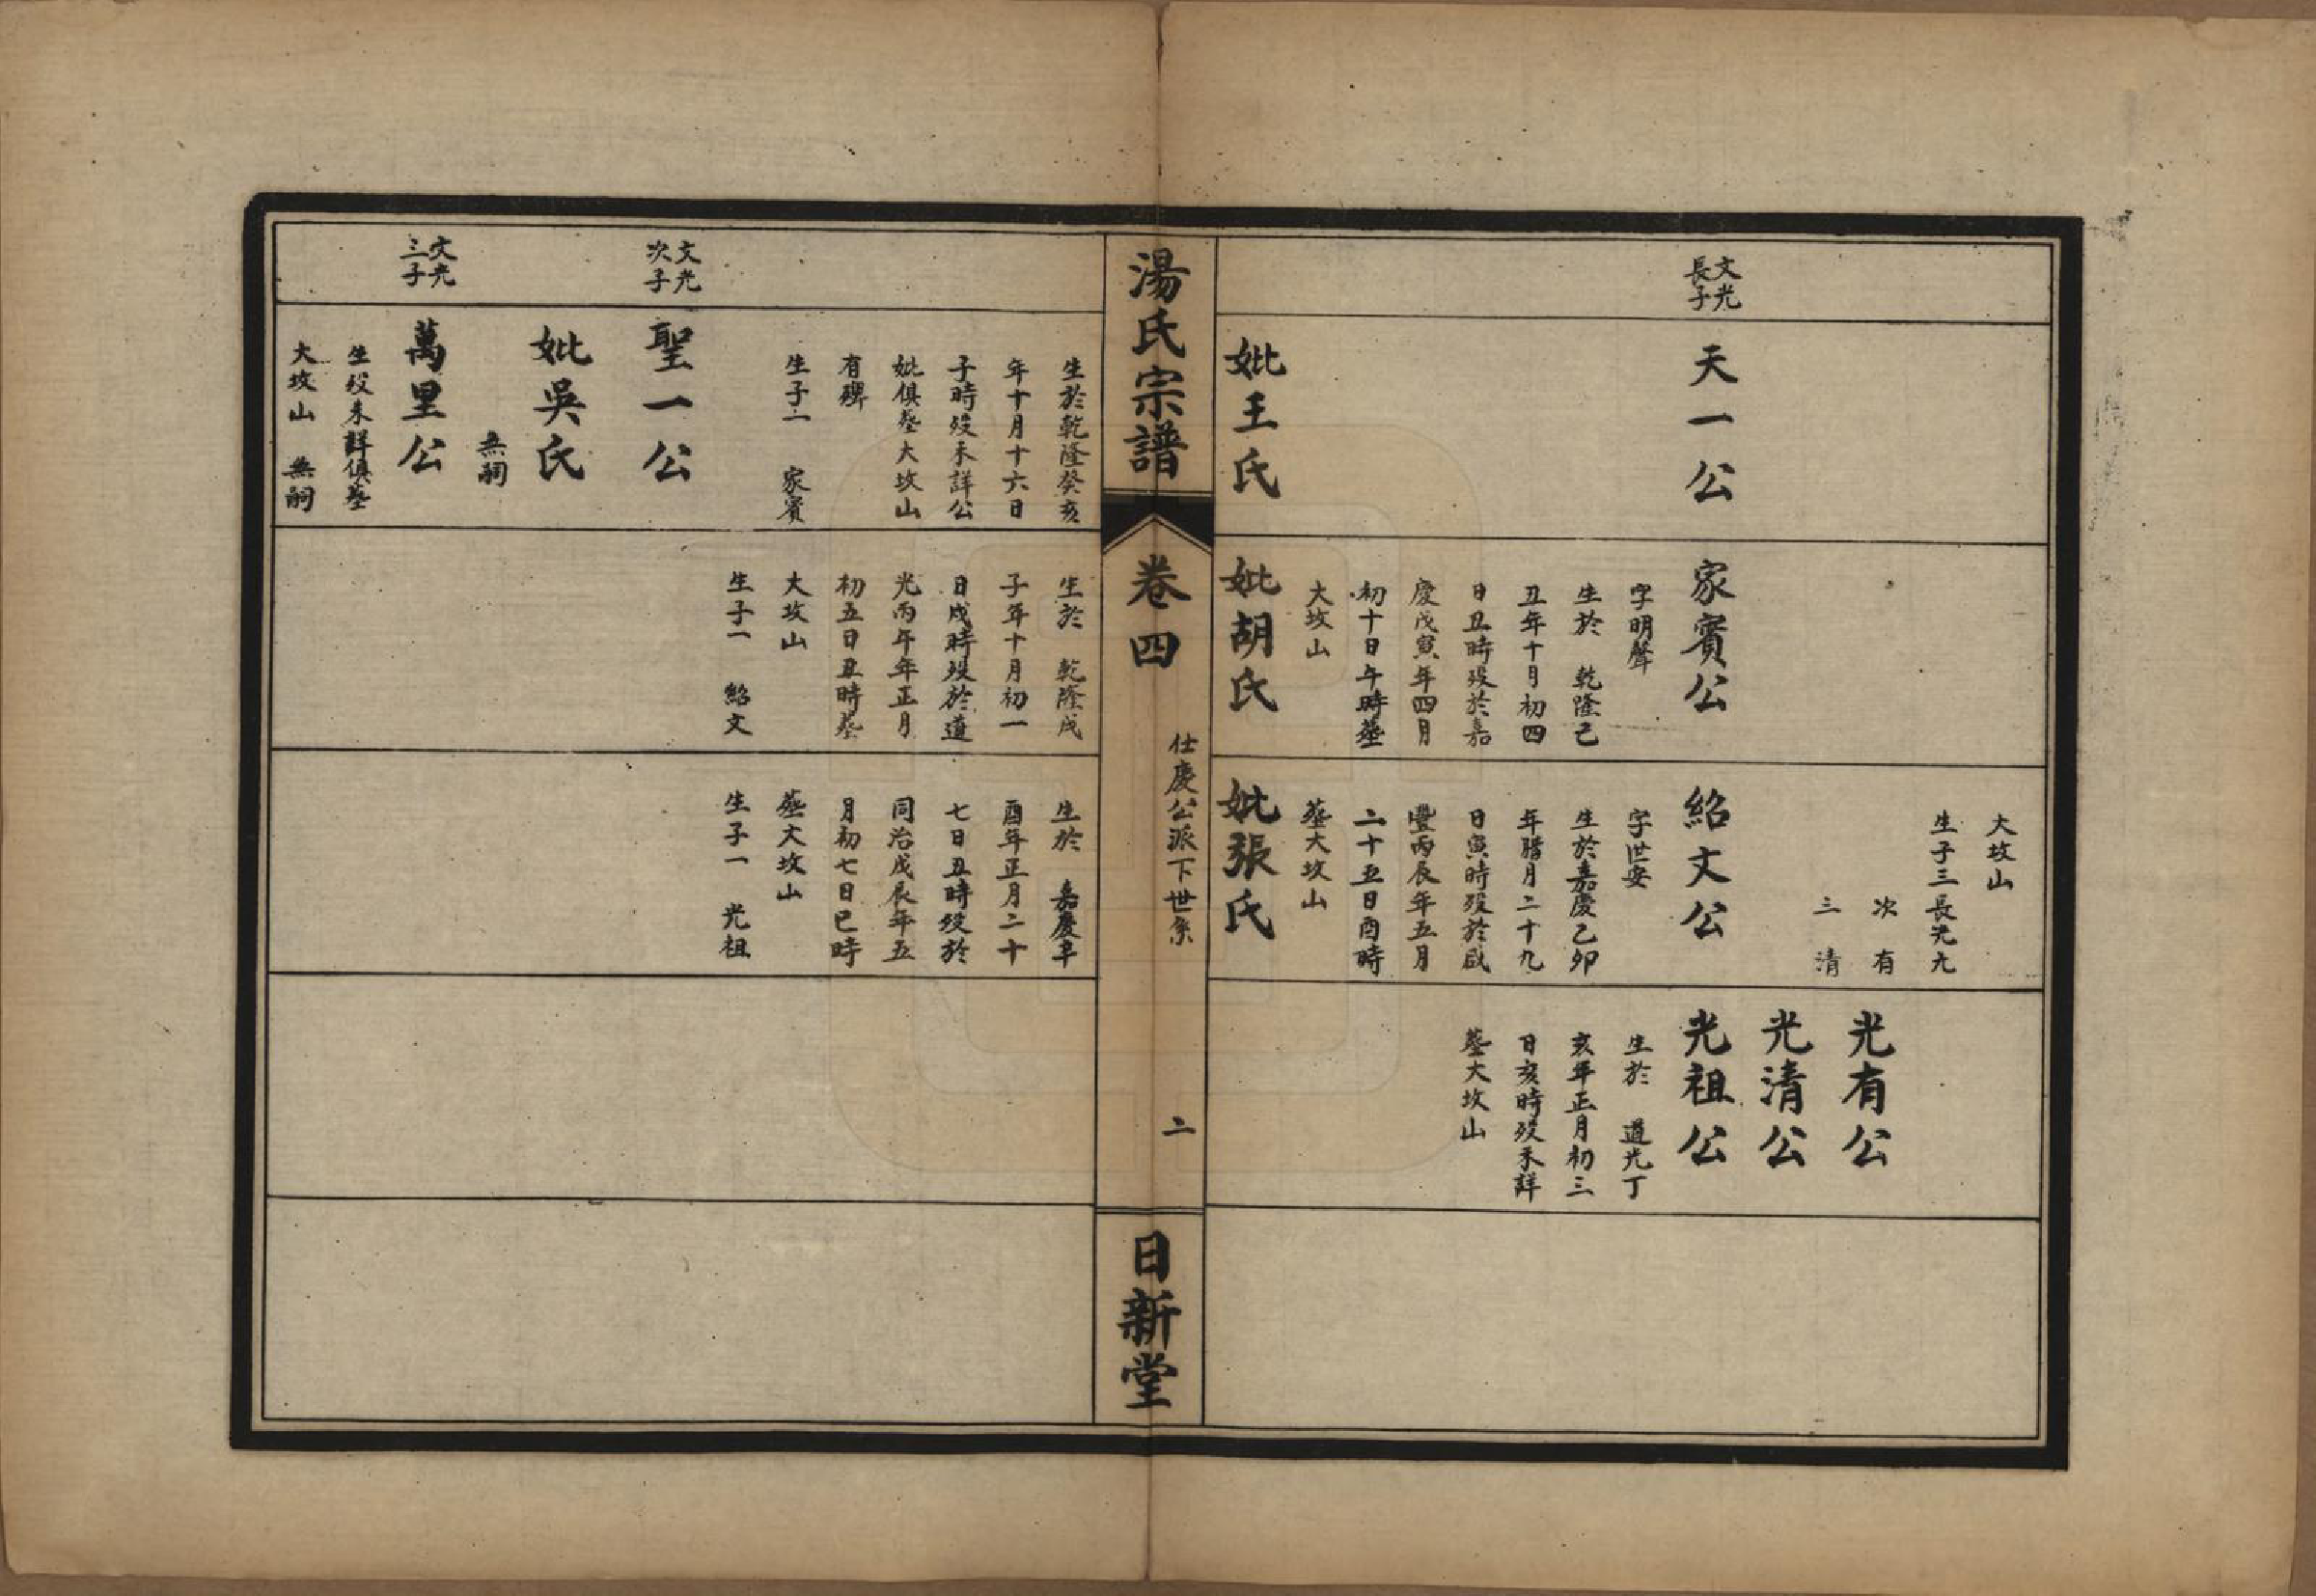 文光
長子
天一公
妣王氏
家賓公
字明聲
生於　乾隆己
丑年十月初四
日丑時歿於嘉
慶戊寅年四月
初十日午時塟
大坟山
妣胡氏
大坟山
生子三長光九
次有
三清
紹文公
字世安
生於嘉慶乙卯
年腊月二十九
日寅時歿於啟
豐丙辰年五月
二十五日酉時
塟大坟山
妣張氏
光有公
光清公
光祖公
生於　道光丁
亥年正月初三
日亥時歿未詳
塟大坟山
湯氏宗譜
卷四
仕慶公派下世系
二
日新堂
生於乾隆癸亥
年十月十六日
子時歿未詳公
妣俱塟大坟山
有碑
生子一　家賓
文光
次子
聖一公
妣吳氏
無嗣
文光
三子
萬里公
生歿未詳俱塟
大坟山　無嗣
生於　乾隆戊
子年十月初一
日戌時歿於道
光丙午年正月
初五日丑時塟
大坟山
生子一　紹文
生於　嘉慶辛
酉年正月二十
七日丑時歿於
同治戊辰年五
月初七日巳時
塟大坟山
生子一　光祖